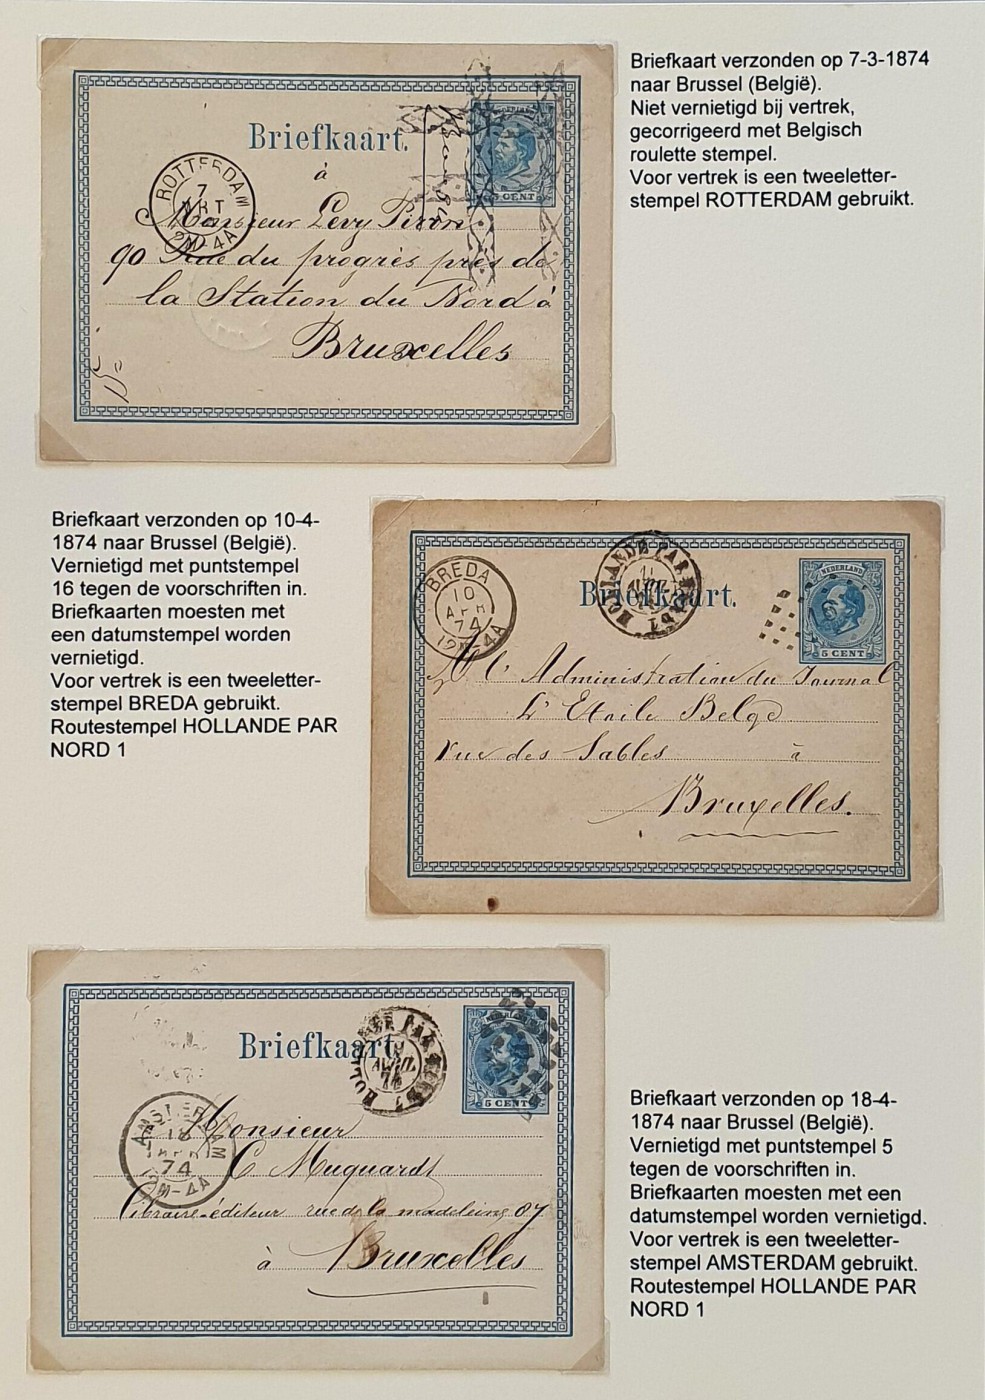 Briefkaart verzonden op 7-3-1874
naar Brussel (België).
Niet vernietigd bij vertrek,
gecorrigeerd met Belgisch
roulette stempel.
Voor vertrek is een tweeletter-
stempel ROTTERDAM gebruikt.
Briefkaart.
5 CENT
ROTTERDAM
7
MRT
2M-4A
à
Monsieur Levy Piron
90 Rue du progrès près de
la Station du Nord à
Bruxelles
Briefkaart verzonden op 10-4-
1874 naar Brussel (België).
Vernietigd met puntstempel
16 tegen de voorschriften in.
Briefkaarten moesten met
een datumstempel worden
vernietigd.
Voor vertrek is een tweeletter-
stempel BREDA gebruikt.
Routestempel HOLLANDE PAR
NORD 1
BREDA
10
APR
74
12M-4A
HOLLANDE PAR NORD 1
11
Briefkaart.
NEDERLAND
5 CENT
A l'Administration du Journal
L'Etoile Belge
rue des Sables à
Bruxelles.
Briefkaart.
HOLLANDE PAR NORD 1
AVRIL
74
5 CENT
AMSTERDAM
18
APR
74
M-4A
Monsieur
C Muquardt
libraire-éditeur rue de la madeleine 07
à Bruxelles
Briefkaart verzonden op 18-4-
1874 naar Brussel (België).
Vernietigd met puntstempel 5
tegen de voorschriften in.
Briefkaarten moesten met een
datumstempel worden vernietigd.
Voor vertrek is een tweeletter-
stempel AMSTERDAM gebruikt.
Routestempel HOLLANDE PAR
NORD 1